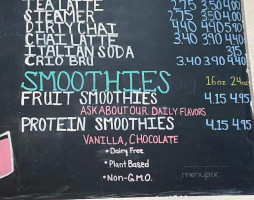 TEA LATTE 2.75 3.50 4.00
STEAMER 2.75 3.50 4.00
DIRTY CHAI 4.40 4.90 5.90
CHAI LATTE 3.40 3.90 4.40
ITALIAN SODA 3.15
CRIO BRU 3.40 3.90 4.40
SMOOTHIES 16oz 24oz
FRUIT SMOOTHIES 4.15 4.95
ASK ABOUT OUR DAILY FLAVORS
PROTEIN SMOOTHIES 4.15 4.95
VANILLA, CHOCOLATE
• Dairy Free
• Plant Based
• Non-G.M.O.
menupix